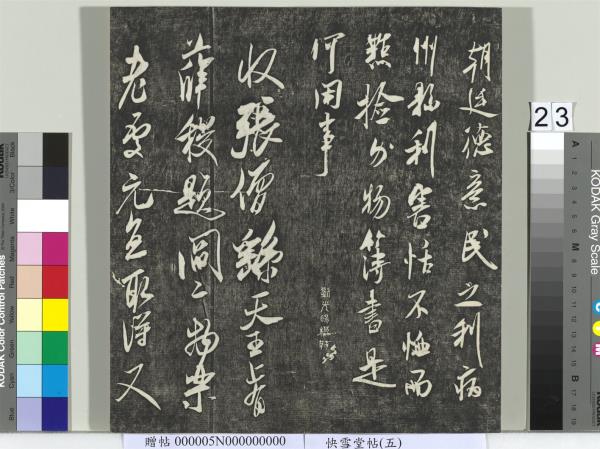 朝廷德意民之利病
州縣利害恬不恤而
點撿分物簿書是
何用事
劉光暘鐫
收張僧繇天王上有
薛稷題閻二物樂
老處元直取得又
23
KODAK Gray Scale
KODAK Color Control Patches
Blue
Cyan
Green
Yellow
Red
Magenta
White
3/Color
Black
A 1 2 3 4 5 6 M 8 9 10 11 12 13 14 15 B 17 18 19
贈帖 000005N000000000 快雪堂帖(五)